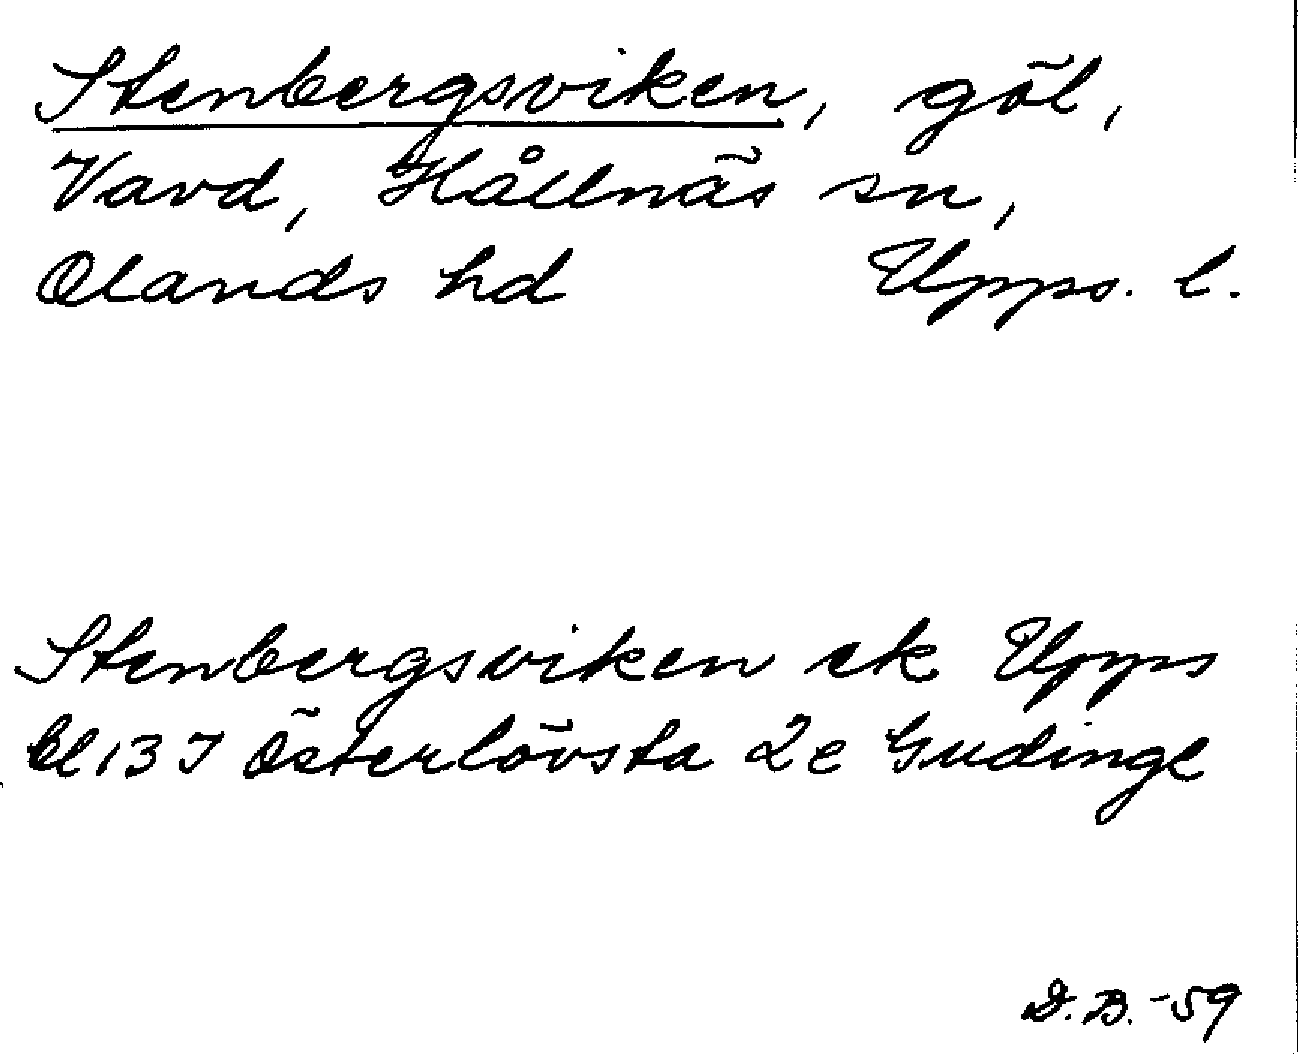 Stenbergsviken, göl,
Vavd, Hållnäs sn,
Olands hd Upps. l.
Stenbergsviken ek Upps
bl 13 J Österlövsta 2e Gudinge
D.B. -59